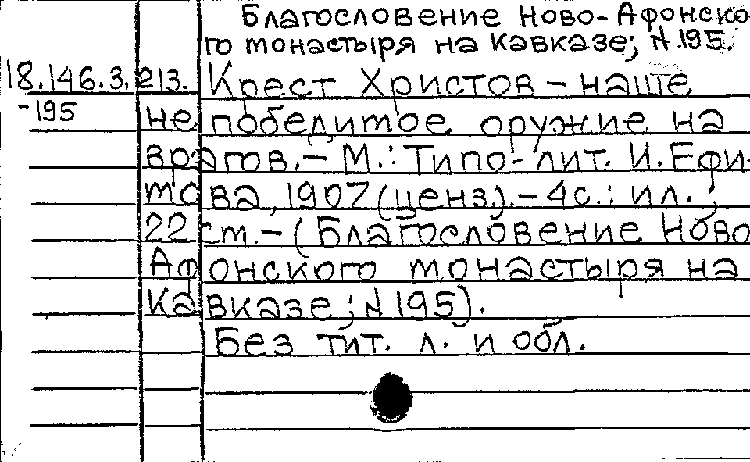 Благословение Ново-Афонско
го монастыря на Кавказе; N 195.
18.146.3.213. Крест Христов - наше
-195 непобедимое оружие на
врагов. - М.: Типо-лит. И. Ефи-
мова, 1907 (ценз.). - 4 с.: ил.;
22 см. - (Благословение Ново
Афонского монастыря на
Кавказе; N 195).
Без тит. л. и обл.